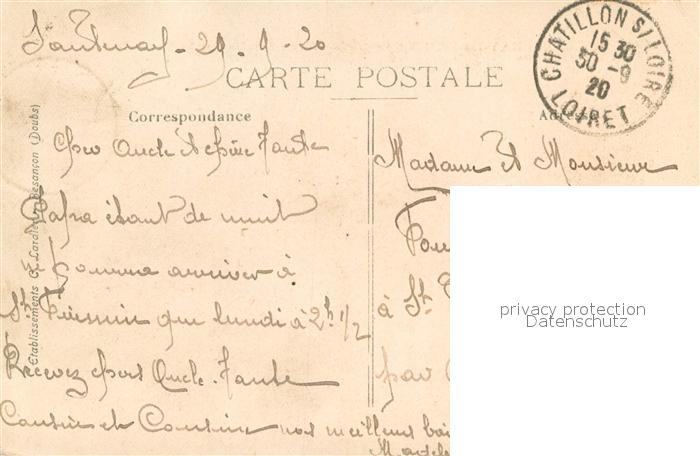 Santenay - 29 - 9 - 20
CARTE POSTALE
CHATILLON S/LOIRE
15 30
30 - 9
20
LOIRET
Correspondance
Adresse
Cher Oncle et chère Tante
Papa étant de nuit
arriver à
St Firmin que lundi à 2h 1/2
Recevez chers Oncle, Tante
Cousine et Cousin nos meilleurs bai
Madame et Monsieur
à St
par
Etablissements C. Lardier, Besançon (Doubs)
privacy protection
Datenschutz